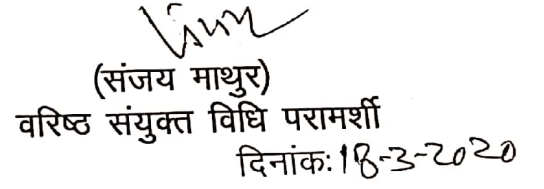 (संजय माथुर)
वरिष्ठ संयुक्त विधि परामर्शी
दिनांक:18-3-2020